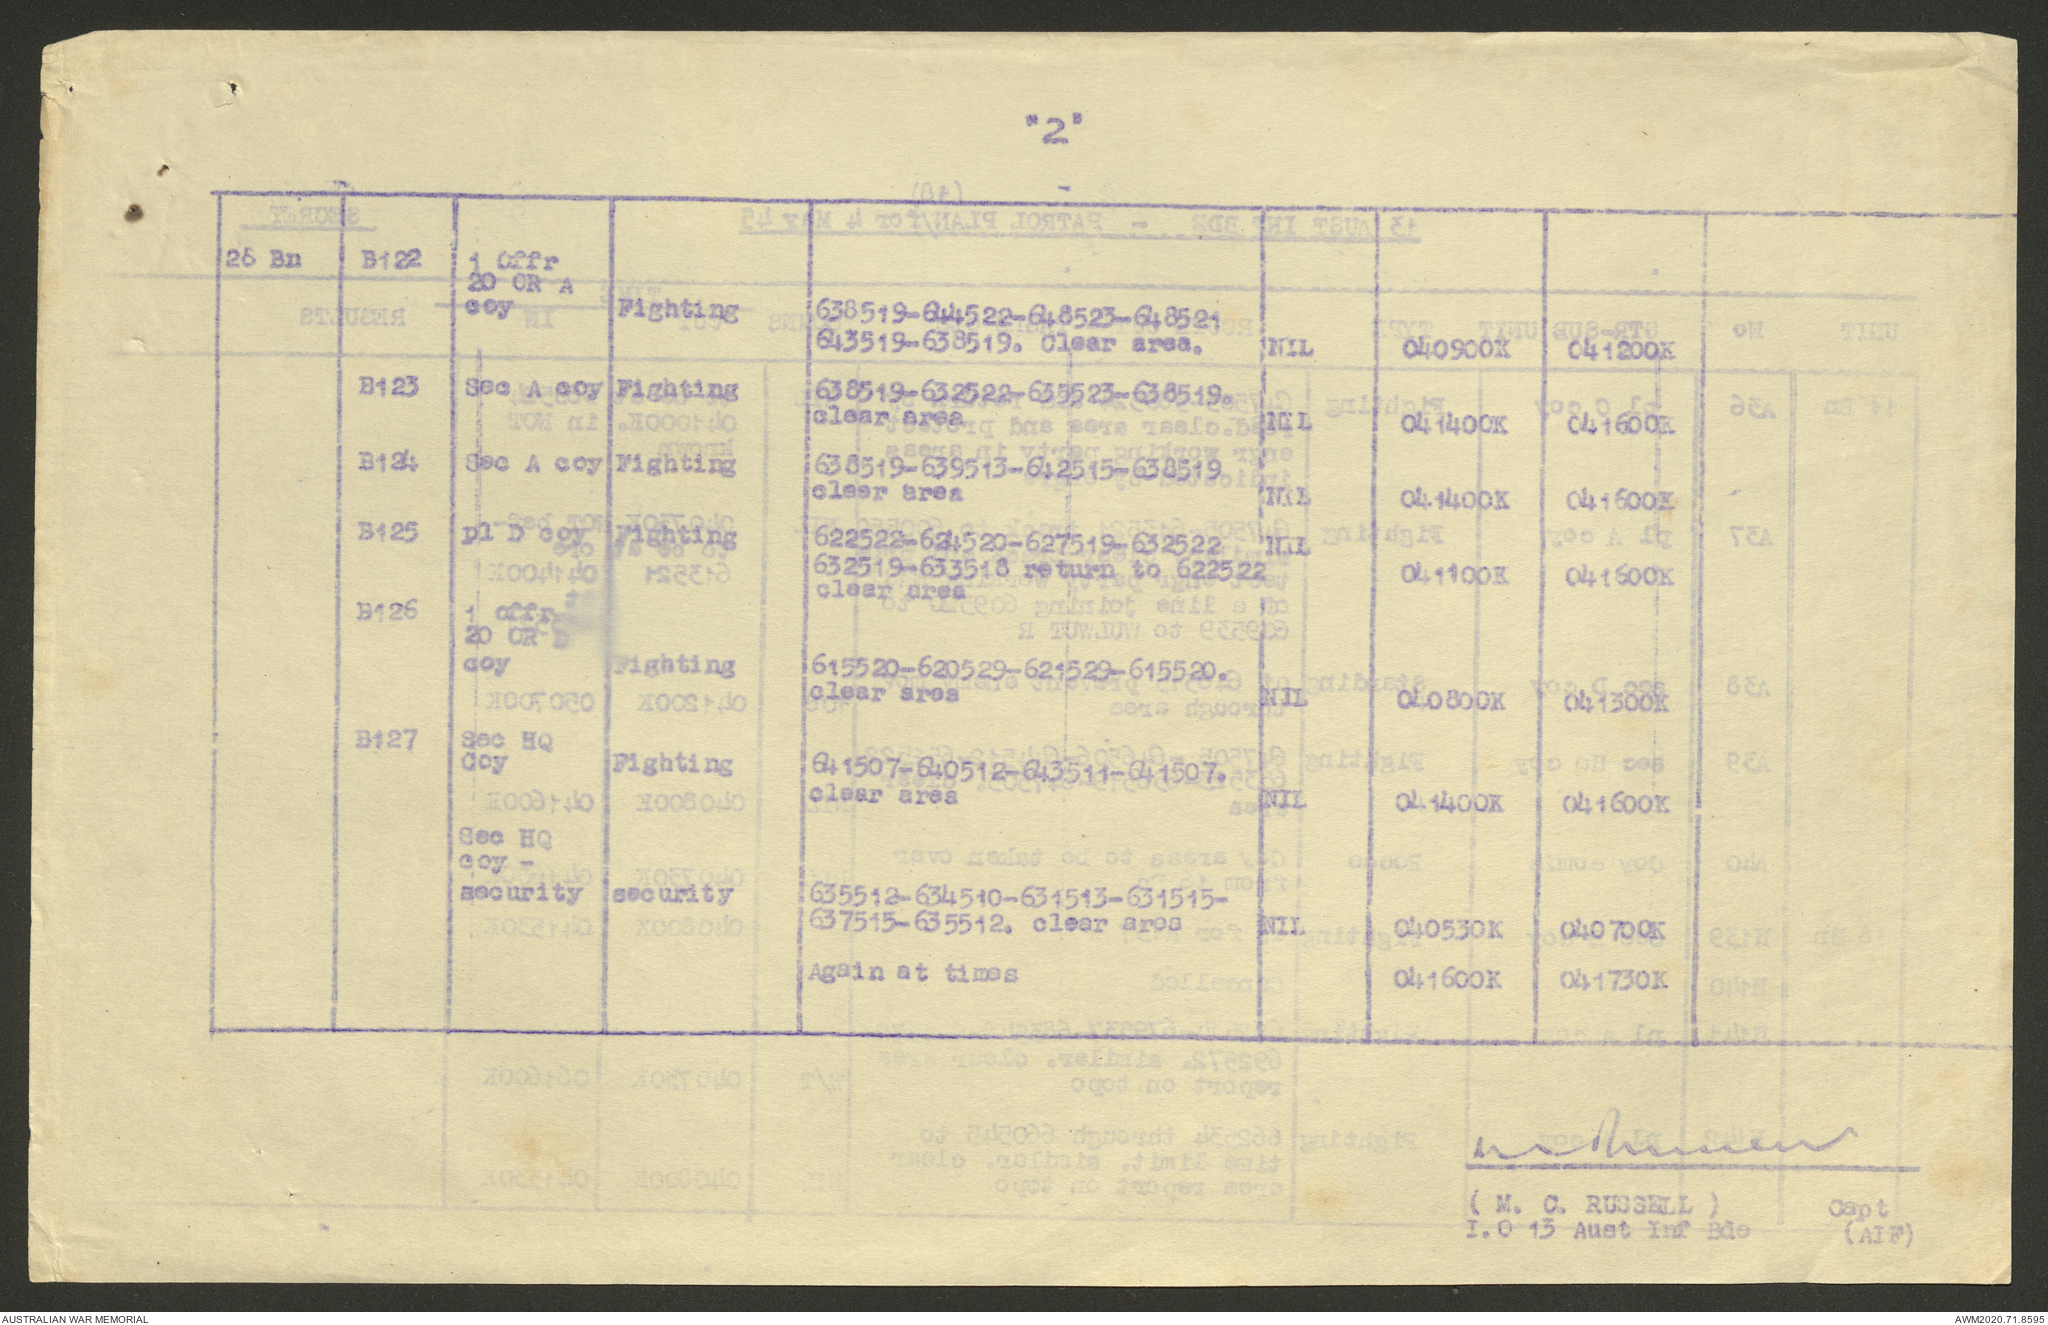 "2"
28 Bn B122 1 Offr
20 OR A
coy Fighting 638519-644522-648523-648521
643519-638519. Clear area. NIL 040900K 041200K
B123 Sec A coy Fighting 638519-632522-635523-638519.
clear area NIL 041400K 041600K
B124 Sec A coy Fighting 638519-639513-642515-638519
clear area NIL 041400K 041600K
B125 pl D coy Fighting 622522-624520-627519-632522 NIL
632519-633518 return to 622522 041100K 041600K
clear area
B126 1 offr
20 OR D
coy Fighting 615520-620529-621529-615520.
clear area NIL 040800K 041300K
B127 Sec HQ
Coy Fighting 641507-640512-643511-641507.
clear area NIL 041400K 041600K
Sec HQ
coy -
security security 635512-634510-631513-631515-
637515-635512. clear area NIL 040530K 040700K
Again at times 041600K 041730K
( M. C. RUSSELL ) Capt
I.O 13 Aust Inf Bde (AIF)
AUSTRALIAN WAR MEMORIAL AWM2020.71.8595